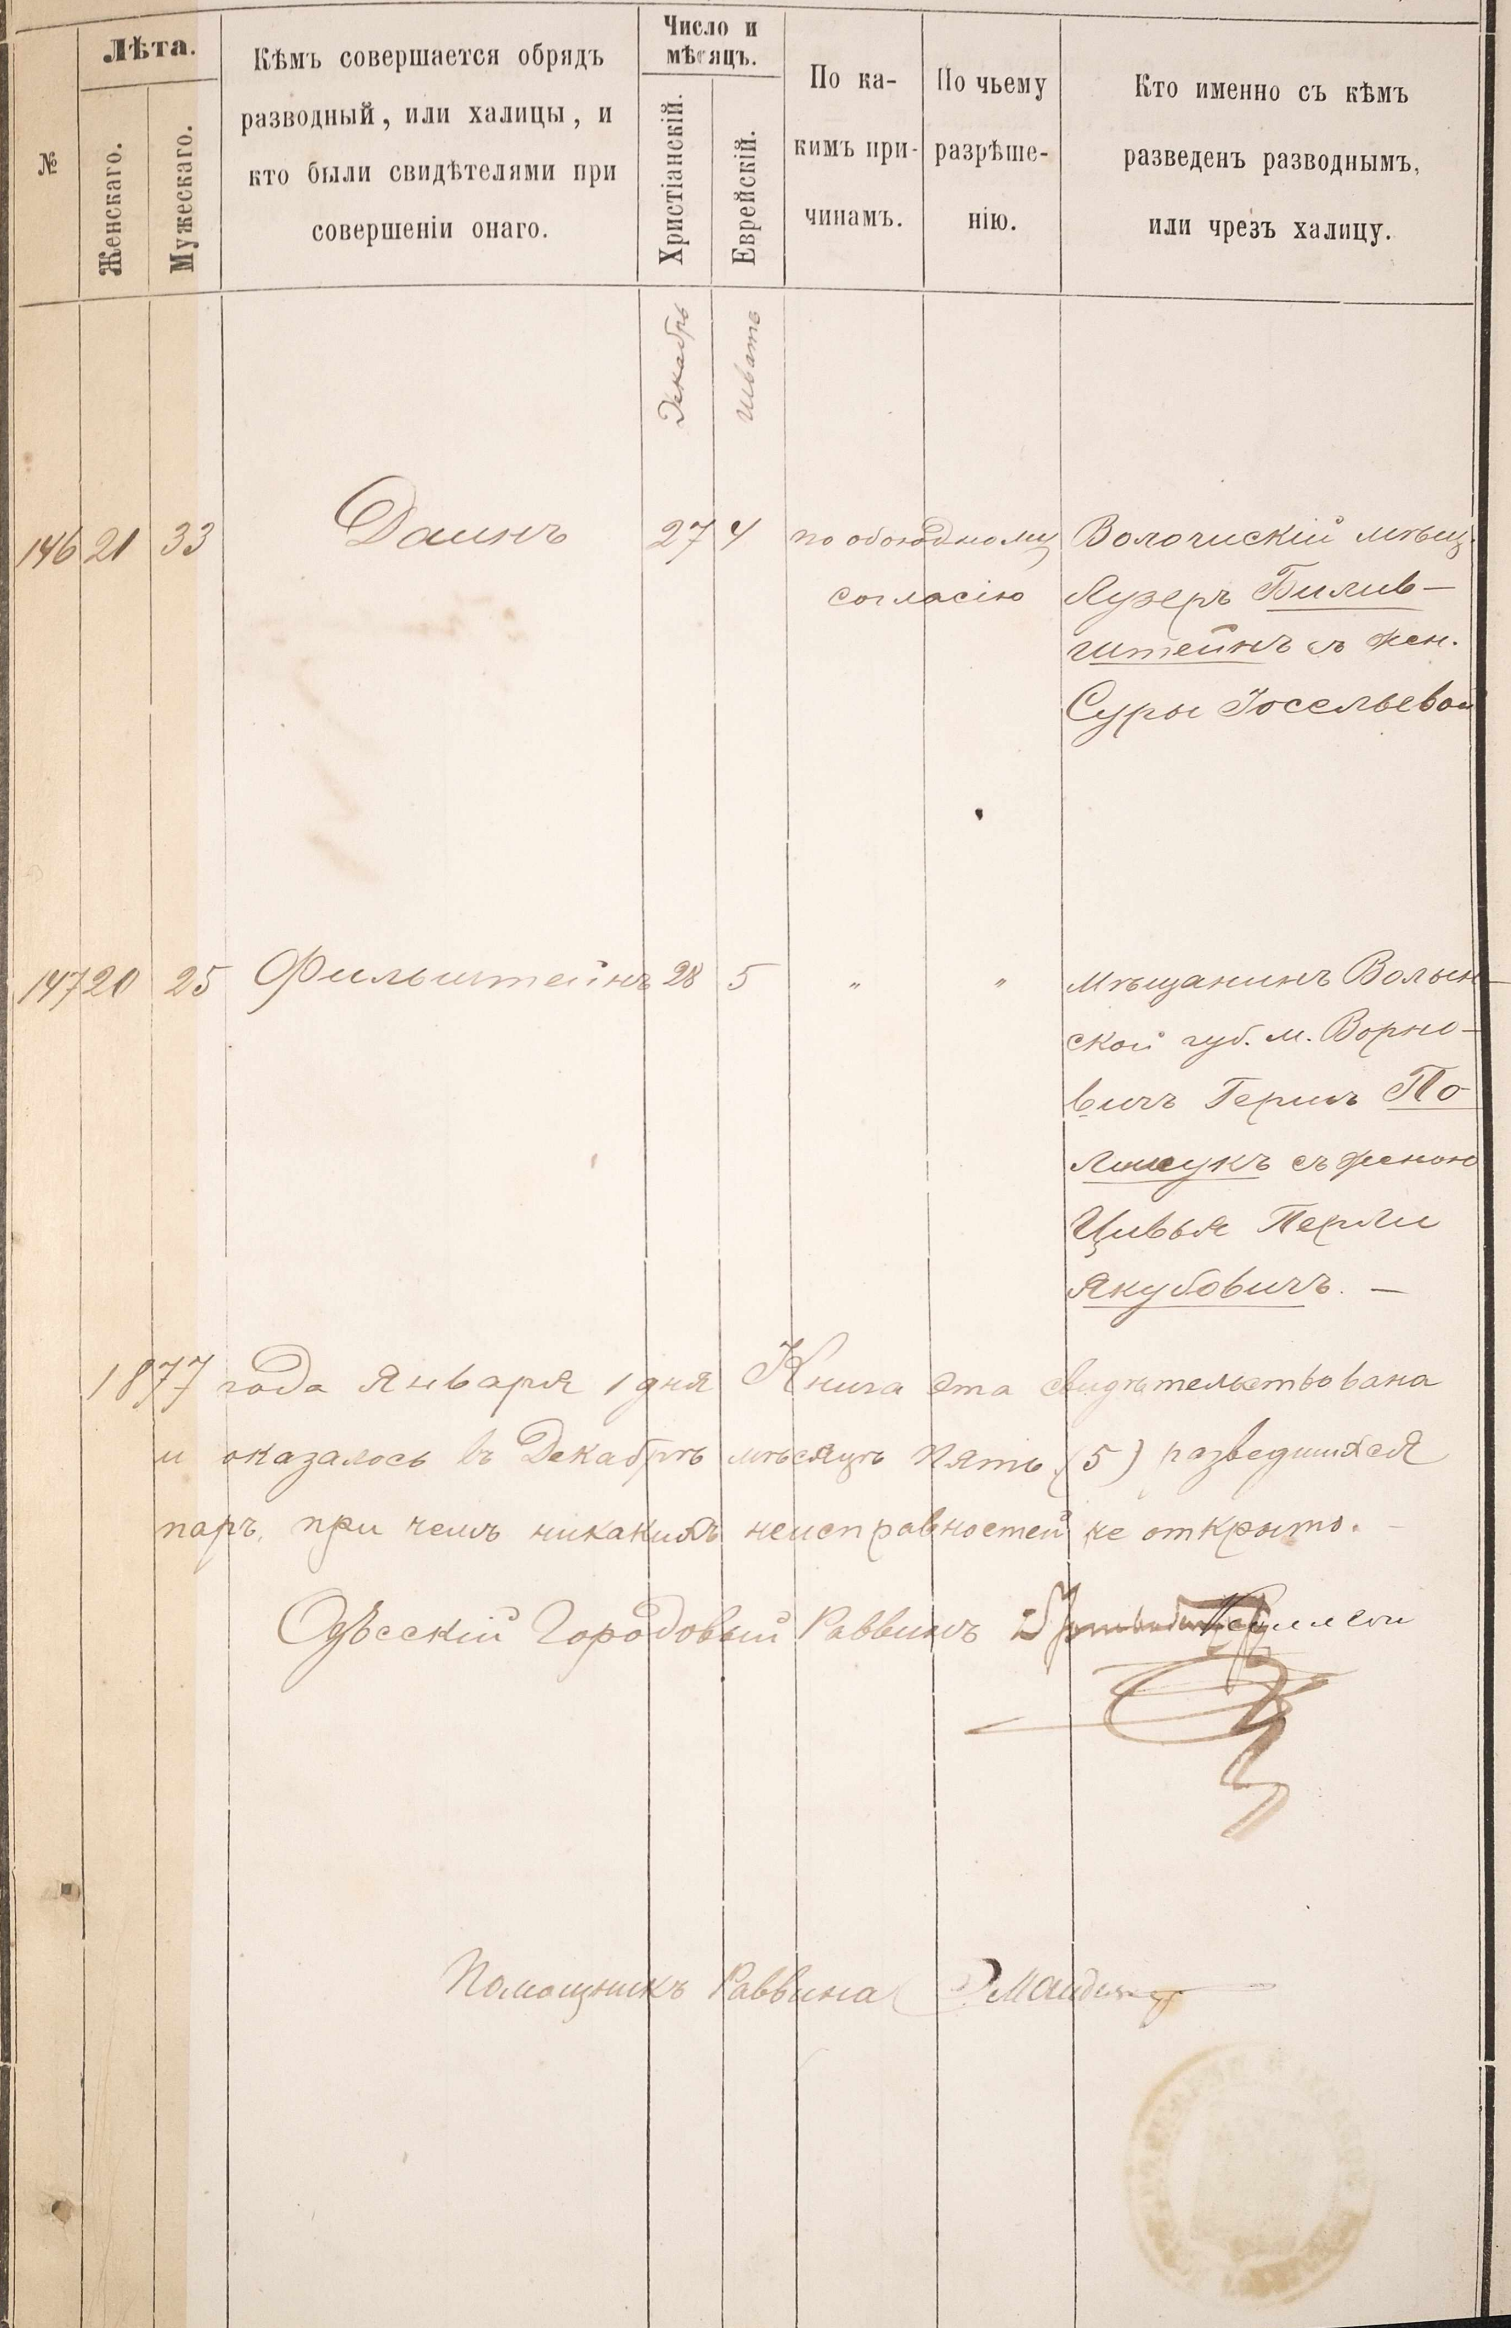 №
Лѣта.
Женскаго.
Мужескаго.
Кѣмъ совершается обрядъ
разводный, или халицы, и
кто были свидѣтелями при
совершеніи онаго.
Число и
мѣсяцъ.
Христіанскій.
Еврейскій.
По ка-
кимъ при-
чинамъ.
По чьему
разрѣше-
нію.
Кто именно съ кѣмъ
разведенъ разводнымъ,
или чрезъ халицу.
Декабрь
Шватъ
146 21 33 Даинъ 27 4 по обоюдному Волочискій мѣщ.
согласію Лузеръ Билив-
штейнъ съ жен.
Суры Іосельевой
147 20 25 Фильштейнъ 28 5 " " мѣщанинъ Волын-
ской губ. м. Ворно-
вичъ Гершъ По
лищукъ съ женою
Цивья Перли
Якубовичъ. —
1877 года Января 1 дня Книга эта свидѣтельствована
и оказалось въ Декабрѣ мѣсяцѣ пять (5) разведшихся
паръ, при чемъ никакихъ неисправностей не открыто. —
Одесскій Городовый Раввинъ
Помощникъ Раввина